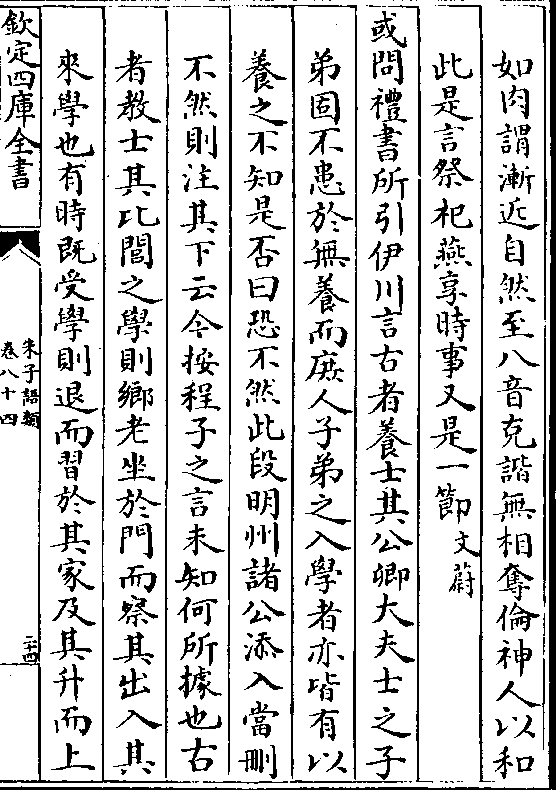 如肉謂漸近自然至八音克諧無相奪倫神人以和
此是言祭祀燕享時事又是一節文蔚
或問禮書所引伊川言古者養士其公卿大夫士之子
弟固不患於無養而庶人子弟之入學者亦皆有以
養之不知是否曰恐不然此段明州諸公添入當刪
不然則注其下云今按程子之言未知何所據也古
者教士其比閭之學則鄉老坐於門而察其出入其
來學也有時既受學則退而習於其家及其升而上
欽定四庫全書
朱子語類
卷八十四
二十四